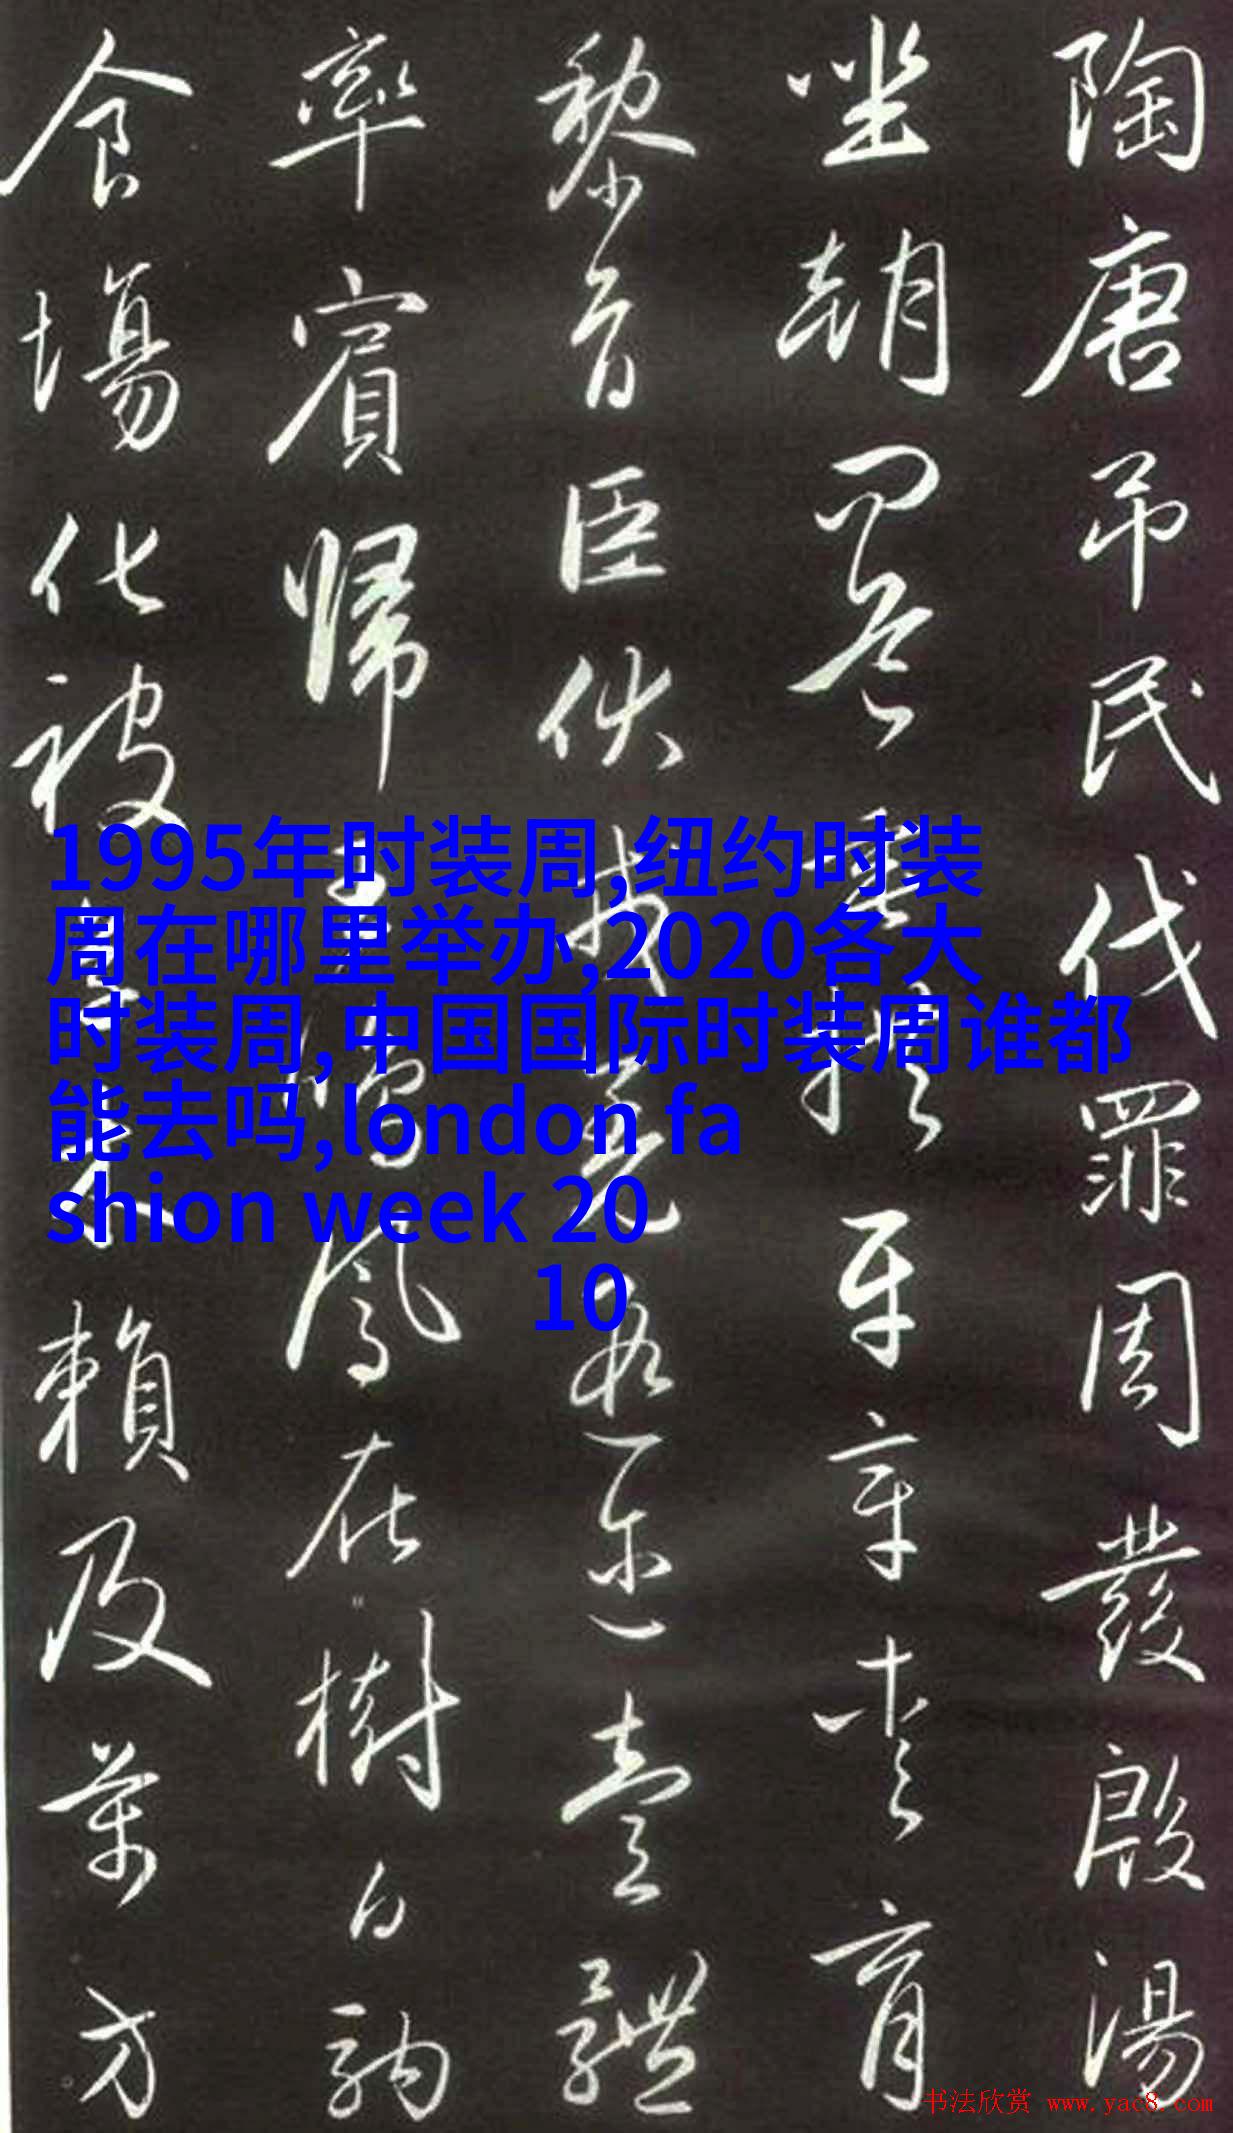 陶唐吊民伐罪周發殷湯
坐朝問道垂拱平章愛育
黎首臣伏戎羌遐邇壹體
率賓歸王鳴鳳在樹白駒
食場化被草木賴及萬方
1995年时装周,纽约时装
周在哪里举办,2020各大
时装周,中国国际时装周谁都
能去吗,london fa
shion week 20
10
书法欣赏 www.yac8.com